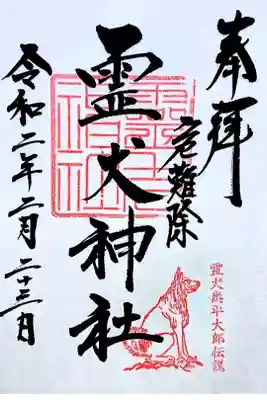 奉拝
危難除
霊犬神社
令和二年二月二十三日
霊犬悉平太郎伝説